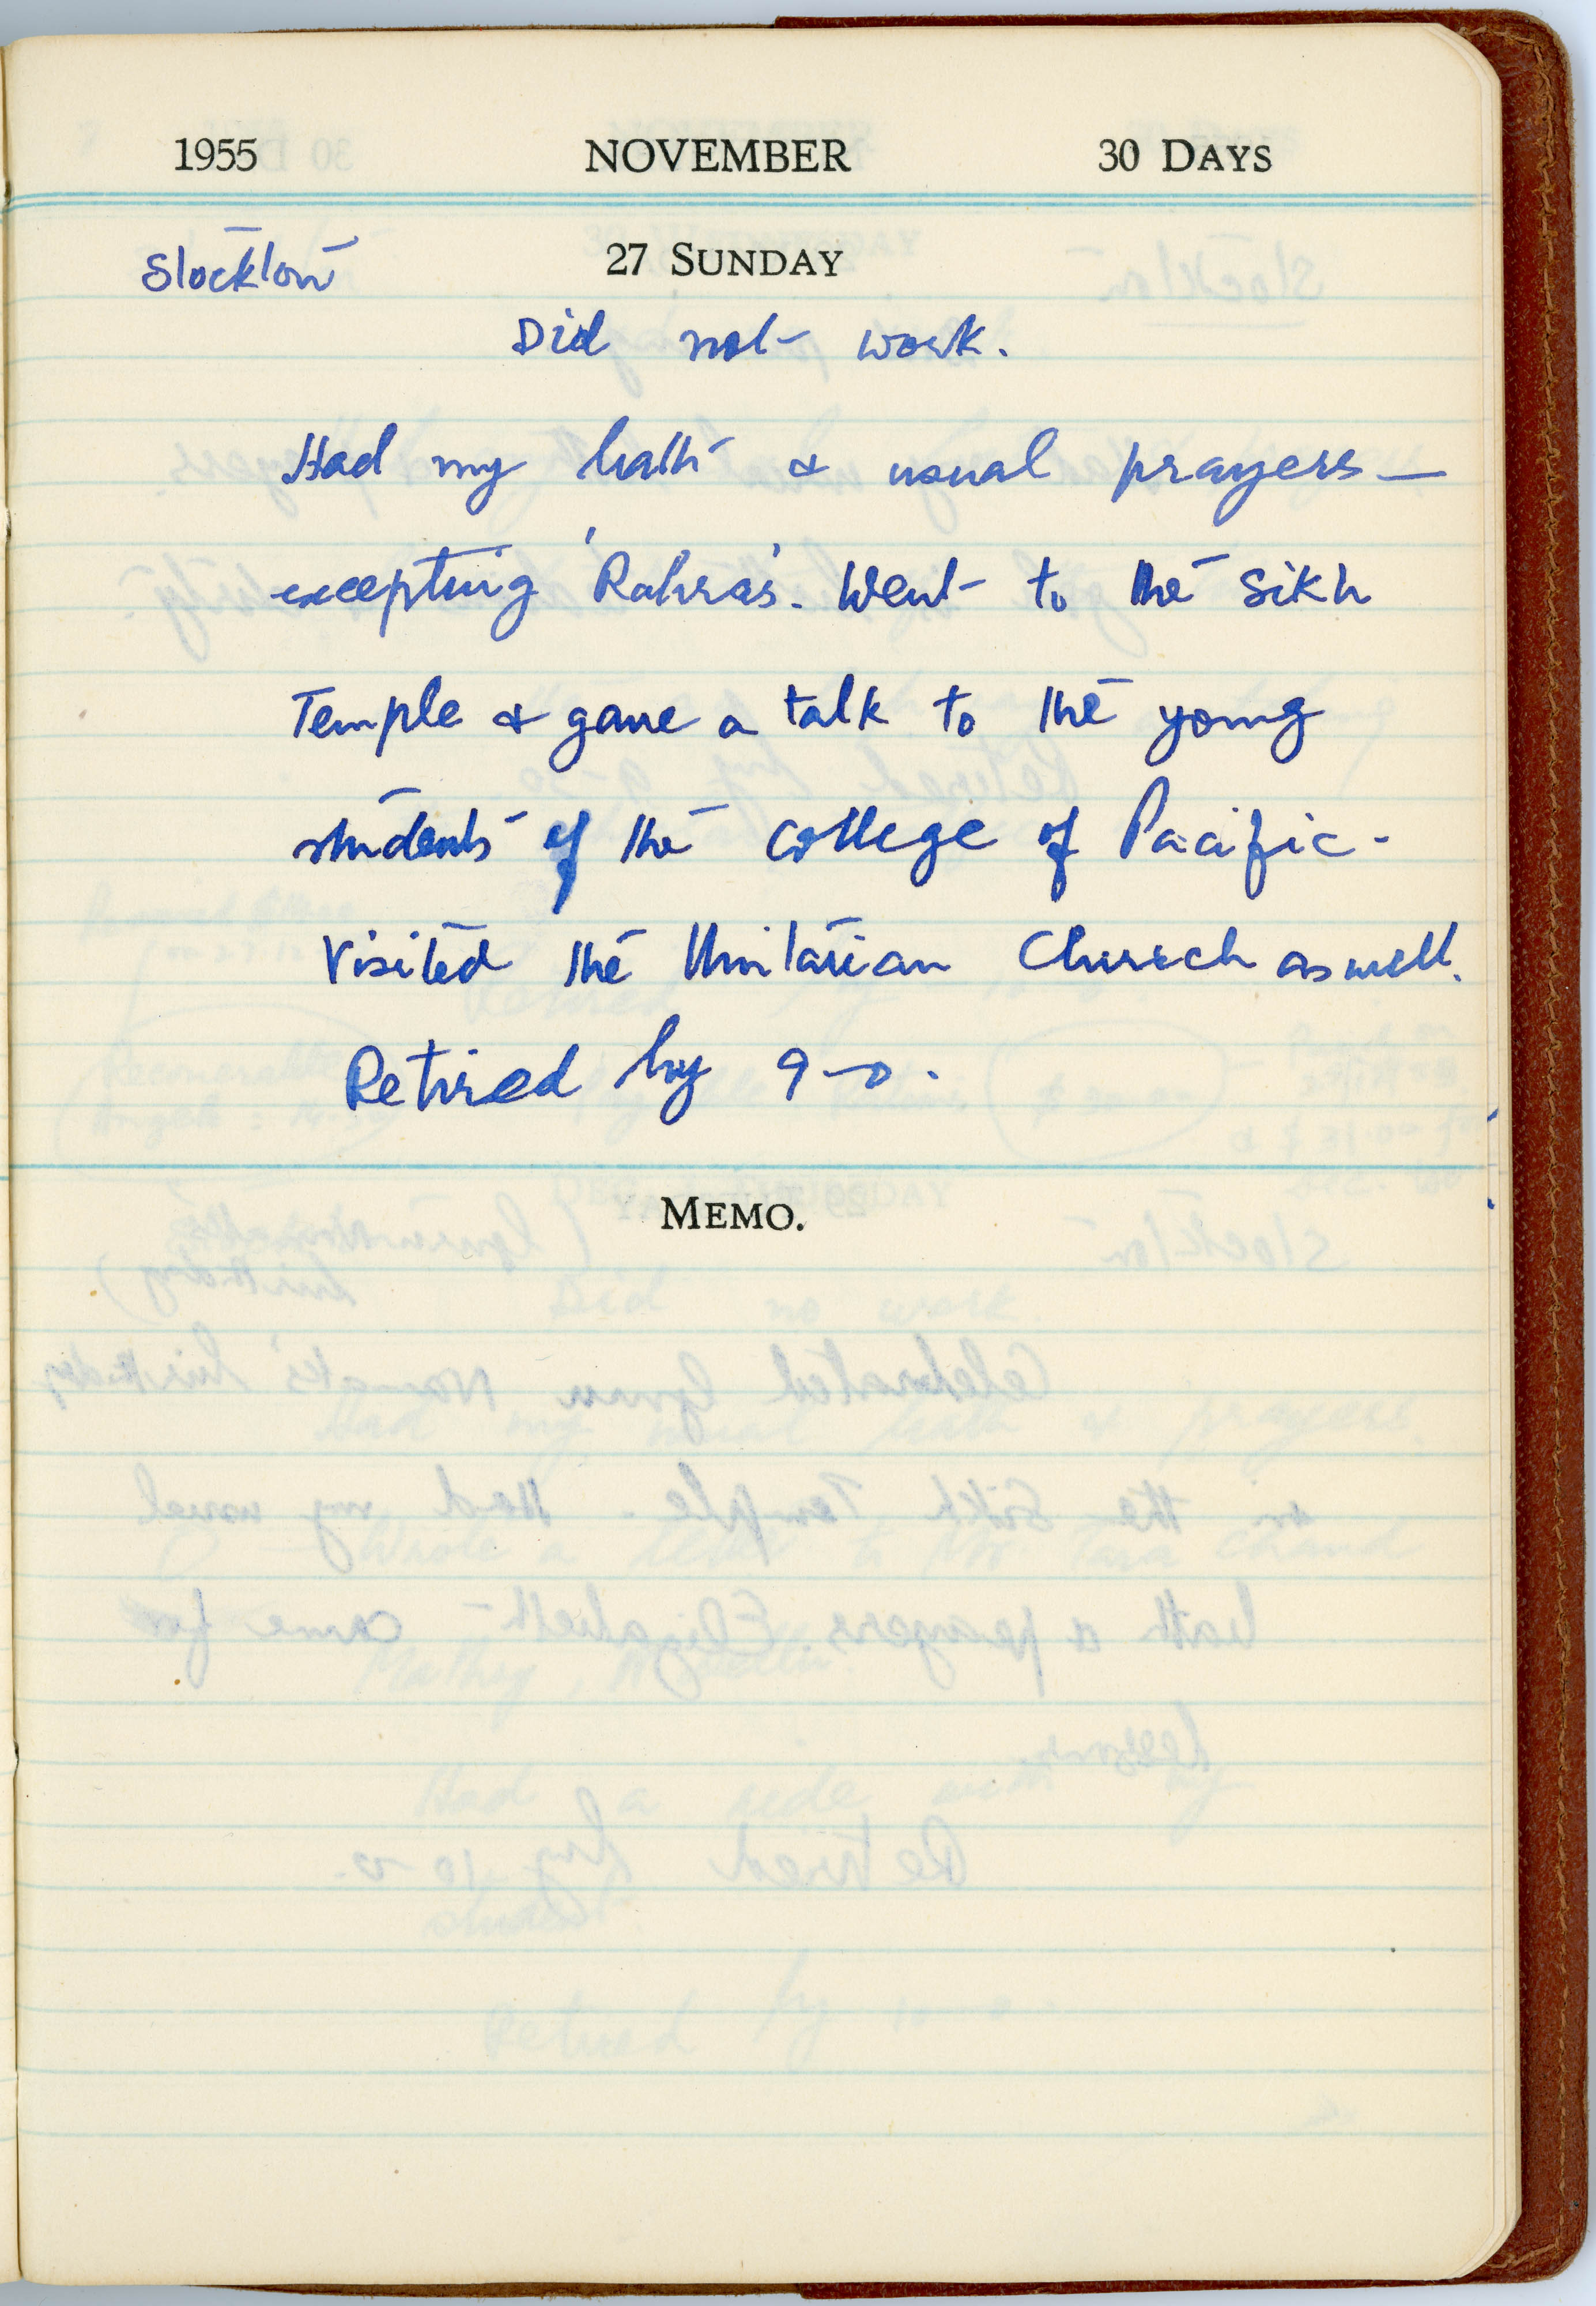 1955 NOVEMBER 30 DAYS
Stockton 27 SUNDAY
Did not work.
Had my bath & usual prayers —
excepting 'Rahras'. Went to the Sikh
Temple & gave a talk to the young
students of the College of Pacific -
Visited the Unitarian Church as well.
Retired by 9-0.
MEMO.